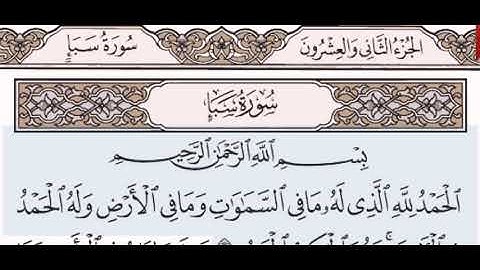 الجزء الثاني والعشرون
سورة سبإ
سُورَةُ سَبَإٍ
بِسْمِ ٱللَّهِ ٱلرَّحْمَٰنِ ٱلرَّحِيمِ
ٱلْحَمْدُ لِلَّهِ ٱلَّذِى لَهُۥ مَا فِى ٱلسَّمَٰوَٰتِ وَمَا فِى ٱلْأَرْضِ وَلَهُ ٱلْحَمْدُ